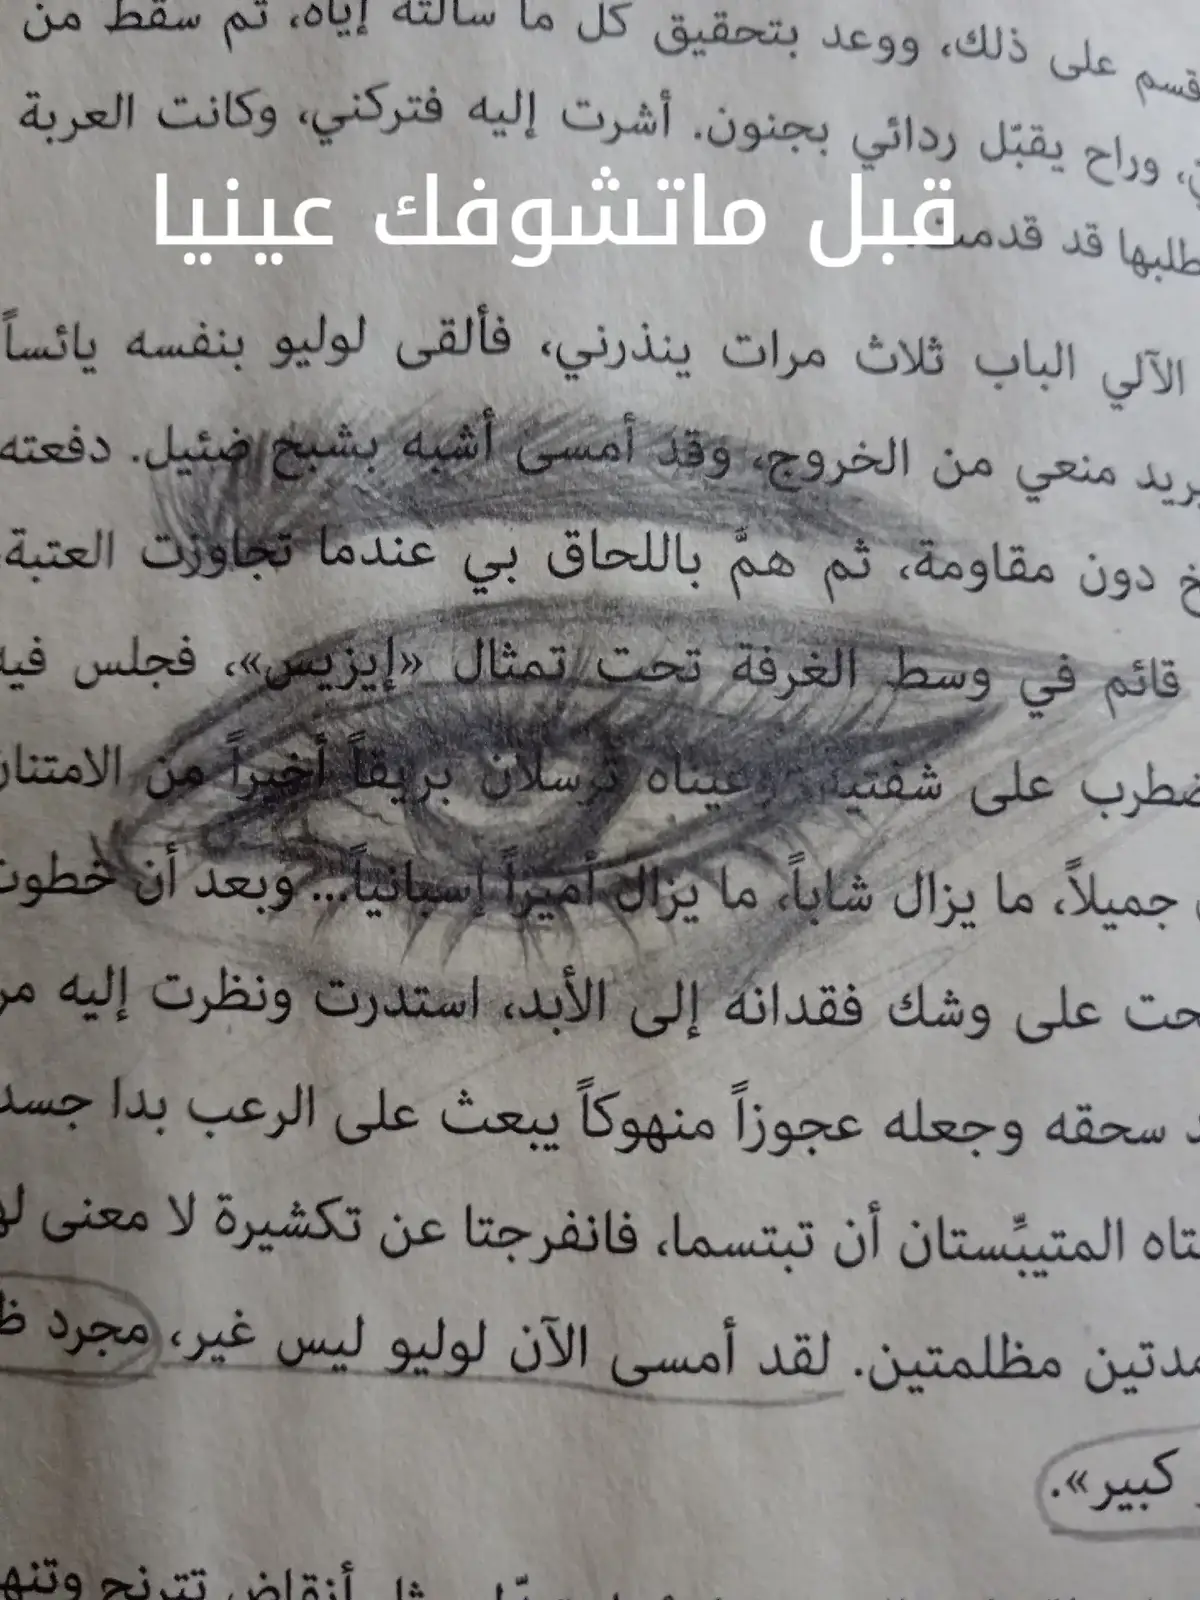 على ذلك، ووعد بتحقيق كل ما سألته إياه، ثم سقط من
وراح يقبّل ردائي بجنون. أشرت إليه فتركني، وكانت العربة
قبل ماتشوفك عينيا
قد
الآلي الباب ثلاث مرات ينذرني، فألقى لوليو بنفسه يائساً
منعي من الخروج، وقد أمسى أشبه بشبح ضئيل. دفعته
دون مقاومة، ثم همَّ باللحاق بي عندما تجاوزت العتبة،
قائم في وسط الغرفة تحت تمثال «إيزيس»، فجلس فيه
على شفتيه، وعيناه ترسلان بريقاً أخيراً من الامتنان
جميلاً، ما يزال شاباً، ما يزال أميراً إسبانياً... وبعد أن خطوت
على وشك فقدانه إلى الأبد، استدرت ونظرت إليه
سحقه وجعله عجوزاً منهوكاً يبعث على الرعب بدا
المتيبِّستان أن تبتسما، فانفرجتا عن تكشيرة لا معنى
مظلمتين. لقد أمسى الآن لوليو ليس غير، مجرد
كبير».
أنقاض تترنح